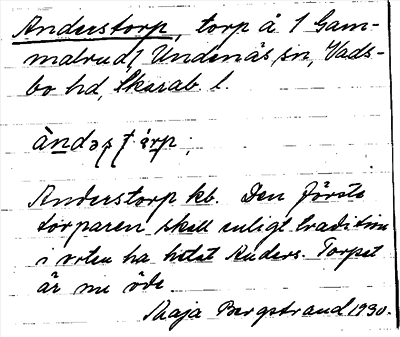 Anderstorp, torp å 1 Gam-
malrud, Undenäs sn, Vads-
bo hd, Skarab. l.
Anderstorp kb. Den förste
torparen skall enligt tradition
i orten ha hetat Anders. Torpet
är nu öde.
Maja Bergstrand 1930.